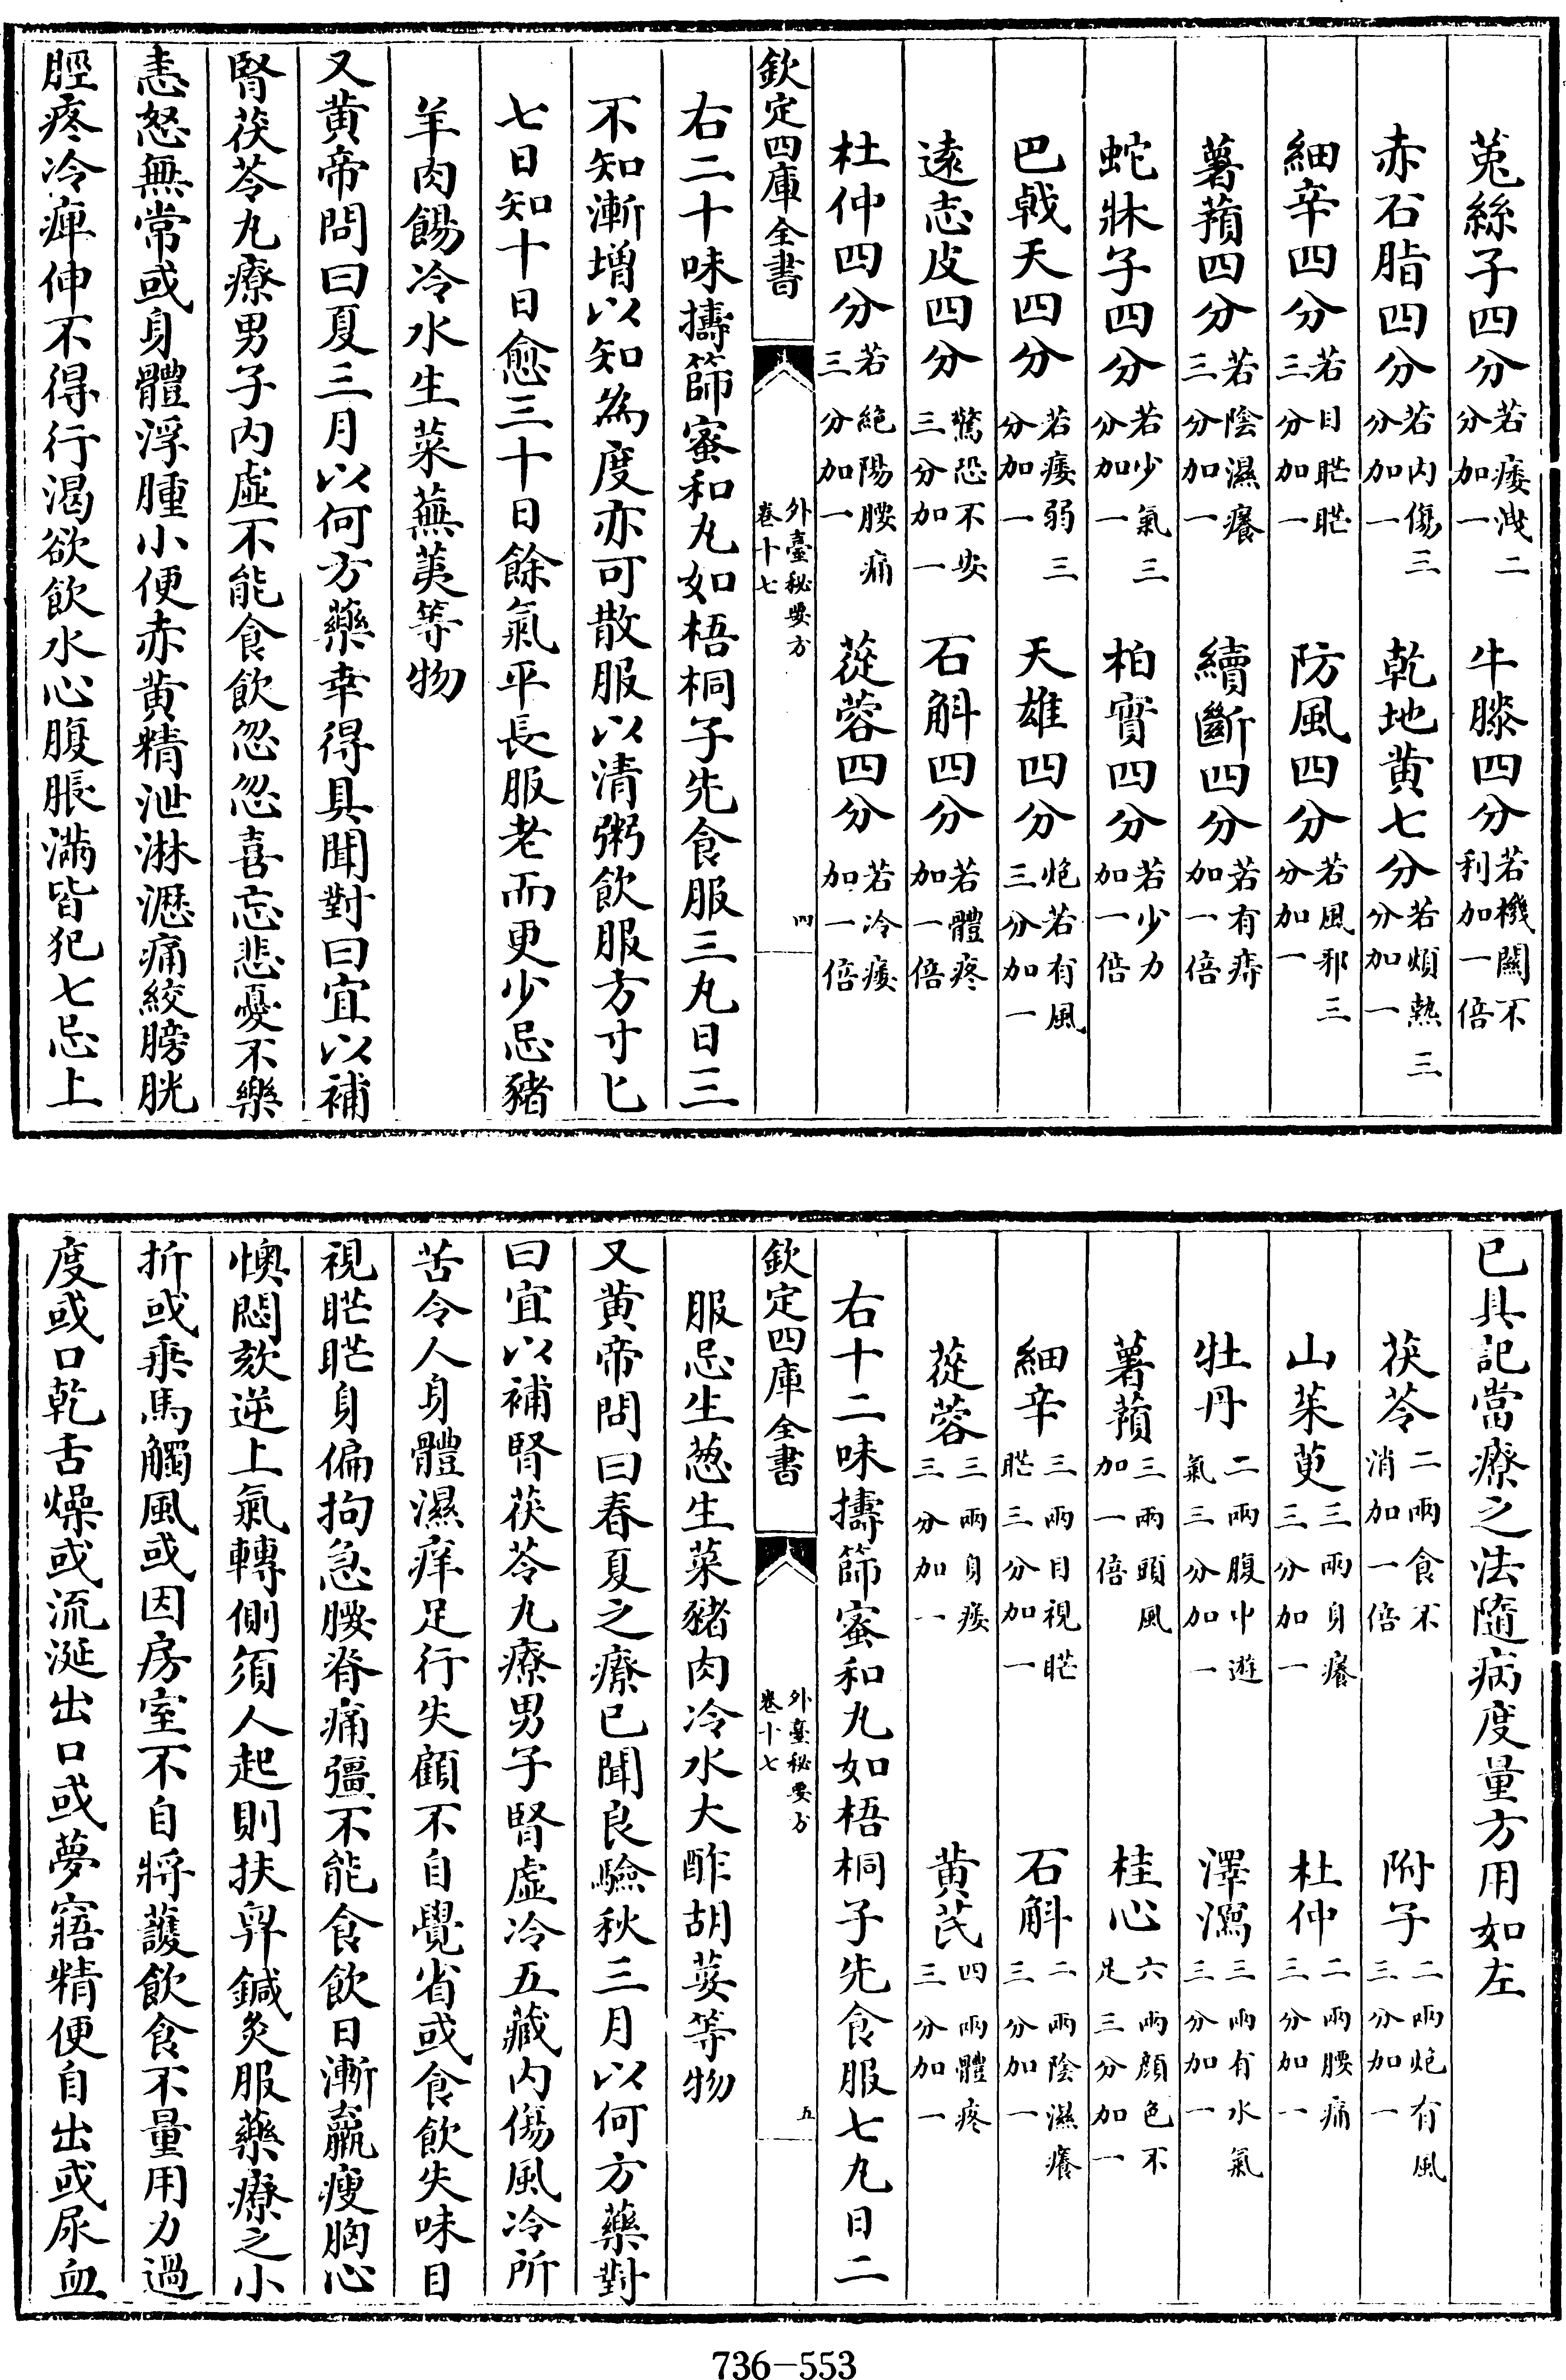 菟絲子四分若痿洩二分加一　牛膝四分若機關不利加一倍
赤石脂四分若内傷三分加一　乾地黄七分若煩熱三分加一
細辛四分若目𥆨𥆨三分加一　防風四分若風邪三分加一
薯蕷四分若陰濕癢三分加一　續斷四分若有痔加一倍
蛇牀子四分若少氣三分加一　柏實四分若少力加一倍
巴戟天四分若痿弱三分加一　天雄四分炮若有風三分加一
逺志皮四分驚恐不安三分加一　石斛四分若體疼加一倍
杜仲四分若絶陽腰痛三分加一　蓯蓉四分若冷痿加一倍
欽定四庫全書　外臺秘要方　卷十七　四
右二十味擣篩蜜和丸如梧桐子先食服三丸日三
不知漸增以知為度亦可散服以清粥飲服方寸匕
七日知十日愈三十日餘氣平長服老而更少忌豬
羊肉餳冷水生菜蕪荑等物
又黄帝問曰夏三月以何方藥幸得具聞對曰宜以補
腎茯苓丸療男子内虛不能食飲忽忽喜忘悲憂不樂
恚怒無常或身體浮腫小便赤黄精泄淋瀝痛絞膀胱
脛疼冷痺伸不得行渴欲飲水心腹脹滿皆犯七忌上
已具記當療之法隨病度量方用如左
茯苓二兩食不消加一倍　附子二兩炮有風三分加一
山茱萸三兩身癢三分加一　杜仲二兩腰痛三分加一
牡丹二兩腹中遊氣三分加一　澤瀉三兩有水氣三分加一
薯蕷三兩頭風加一倍　桂心六兩顔色不足三分加一
細辛三兩目視𥆨𥆨三分加一　石斛二兩陰濕癢三分加一
蓯蓉三兩身痿三分加一　黄芪四兩體疼三分加一
右十二味擣篩蜜和丸如梧桐子先食服七丸日二
欽定四庫全書　外臺秘要方　卷十七　五
服忌生葱生菜豬肉冷水大酢胡荽等物
又黄帝問曰春夏之療已聞良驗秋三月以何方藥對
曰宜以補腎茯苓丸療男子腎虛冷五藏内傷風冷所
苦令人身體濕痒足行失顧不自覺省或食飲失味目
視𥆨𥆨身偏拘急腰脊痛彊不能食飲日漸羸瘦胸心
懊悶欬逆上氣轉側須人起則扶舁鍼灸服藥療之小
折或乘馬觸風或因房室不自將䕶飲食不量用力過
度或口乾舌燥或流涎出口或夢寤精便自出或尿血
736—553